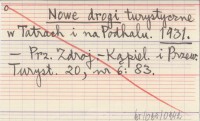 Nowe drogi turystyczne
w Tatrach i na Podhalu. 1931.
— Prz. Zdroj.-Kąpiel. i Przew.
Turyst. 20, nr 6: 83.